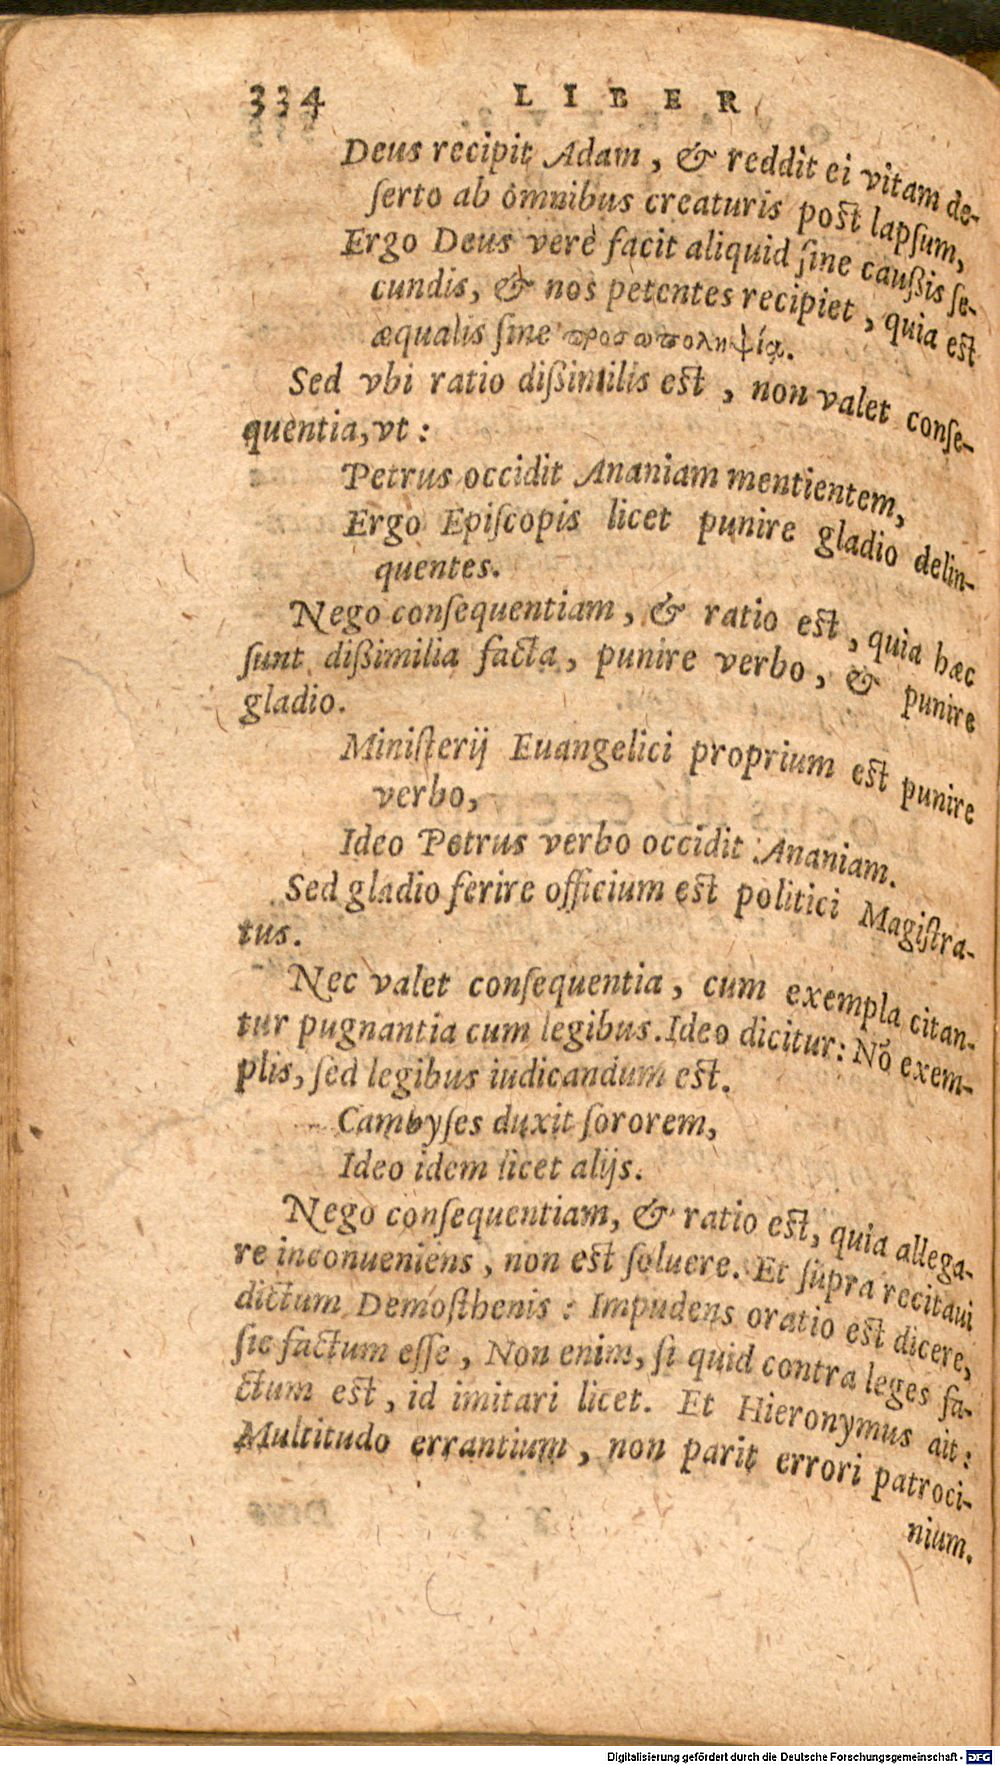 334 LIBER
Deus recipit Adam, & reddit ei vitam de-
ſerto ab omnibus creaturis poſt lapſum,
Ergo Deus verè facit aliquid ſine cauſsis ſe-
cundis, & nos petentes recipiet, quia eſt
æqualis ſine προσωποληψίᾳ.
Sed vbi ratio diſsimilis eſt, non valet conſe-
quentia, vt:
Petrus occidit Ananiam mentientem,
Ergo Epiſcopis licet punire gladio delin-
quentes.
Nego conſequentiam, & ratio eſt, quia hæc
ſunt diſsimilia facta, punire verbo, & punire
gladio.
Miniſterij Euangelici proprium eſt punire
verbo,
Ideo Petrus verbo occidit Ananiam.
Sed gladio ferire officium eſt politici Magiſtra-
tus.
Nec valet conſequentia, cum exempla citan-
tur pugnantia cum legibus. Ideo dicitur: Nõ exem-
plis, ſed legibus iudicandum eſt.
Cambyſes duxit ſororem,
Ideo idem licet alijs.
Nego conſequentiam, & ratio eſt, quia allega-
re inconueniens, non eſt ſoluere. Et ſupra recitaui
dictum Demoſthenis: Impudens oratio eſt dicere,
ſic factum eſſe, Non enim, ſi quid contra leges fa-
ctum eſt, id imitari licet. Et Hieronymus ait:
Multitudo errantium, non parit errori patroci-
nium.
Digitalisierung gefördert durch die Deutsche Forschungsgemeinschaft - DFG